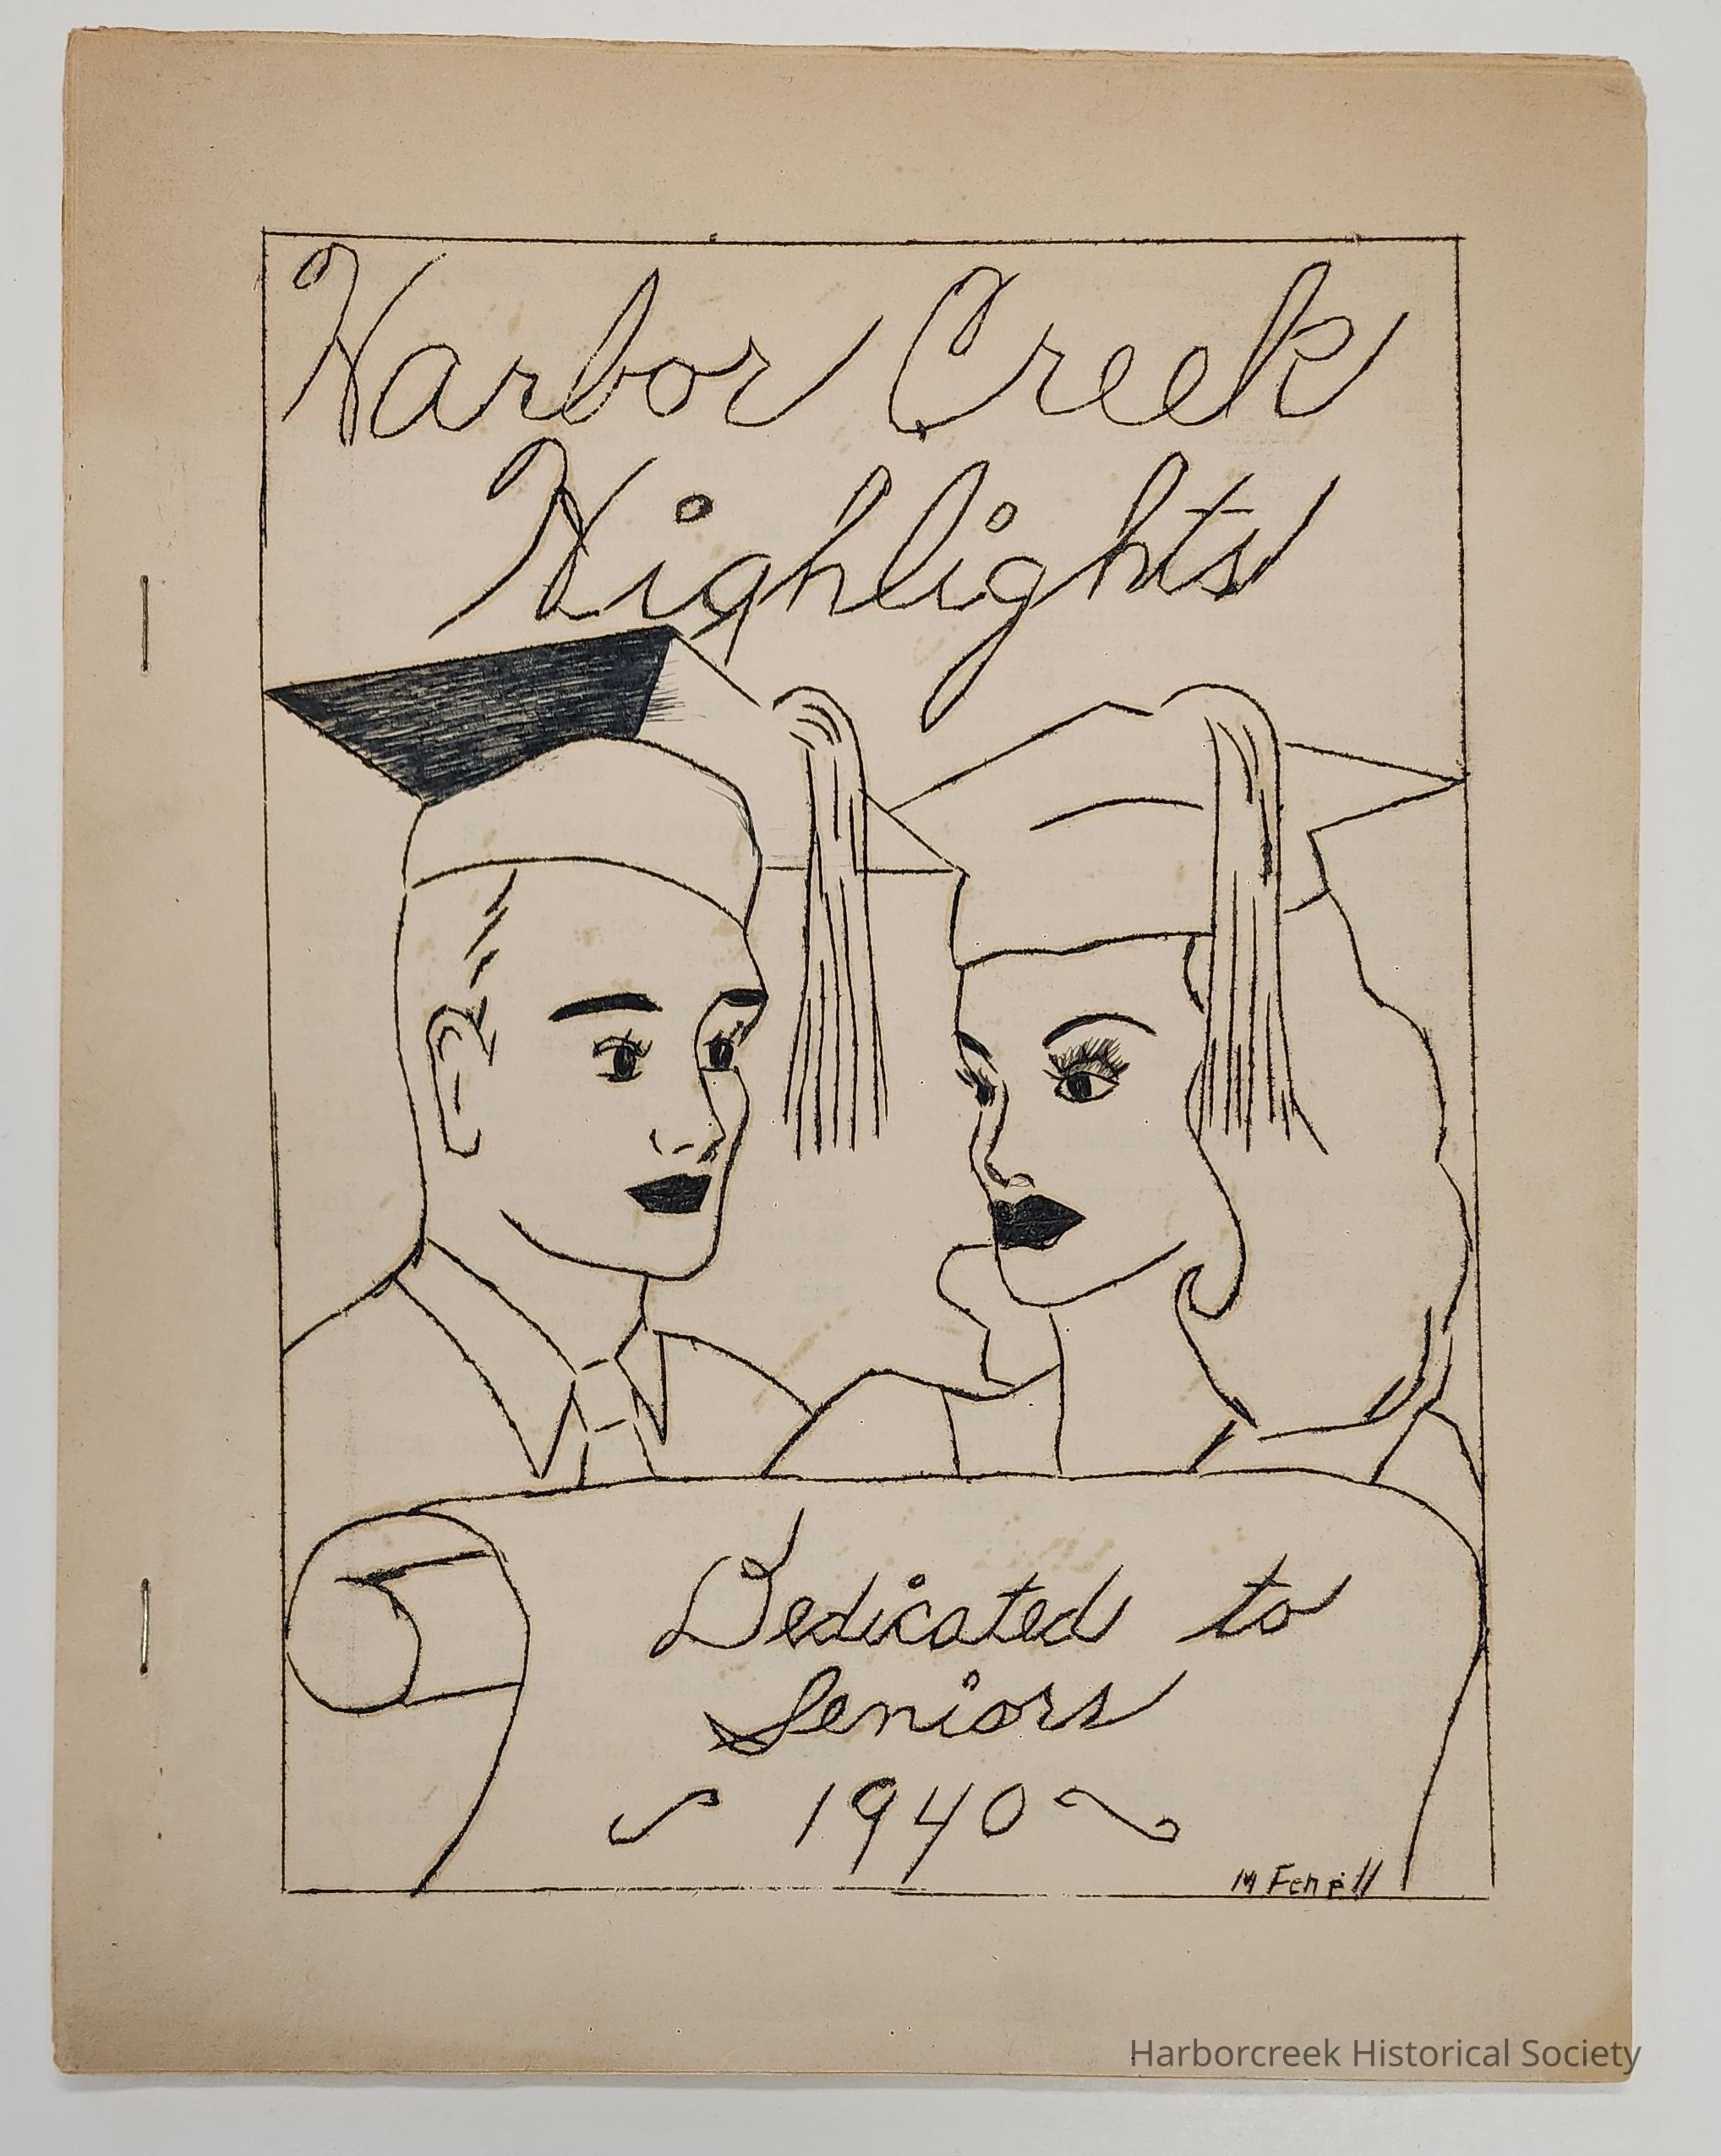 Harbor Creek
Highlights
Dedicated to
Seniors
1940
M
Harborcreek Historical Society